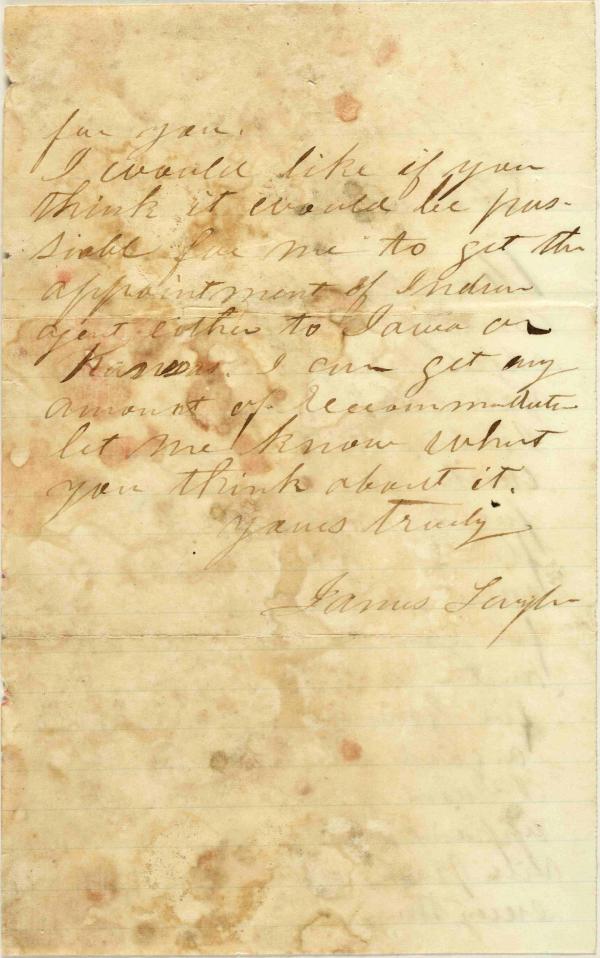 for you.
I would like if you
think it would be pos-
siable for me to get the
appointment of Indian
agent eother to Iawa or
Kansas. I can get any
amount of
let me know what
you think about it.
yours truely
James